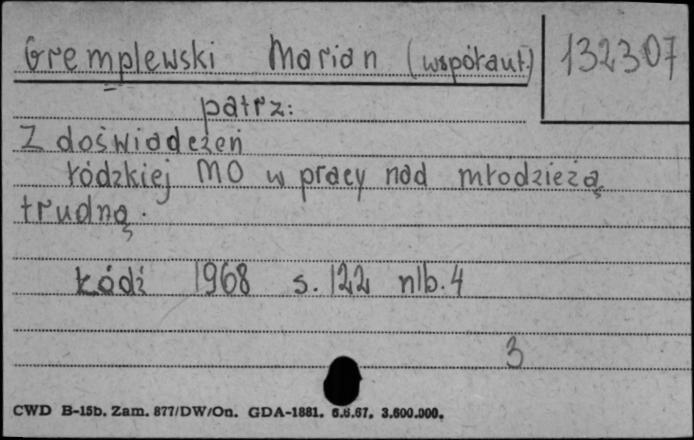 Gremplewski Marian (współaut.) 132307
patrz:
Z doświadczeń
łódzkiej MO w pracy nad młodzieżą
trudną.
Łódź 1968 s. 122 nlb. 4
3
CWD B-15b. Zam. 877/DW/On. GDA-1881. 6.6.67. 3.600.000.